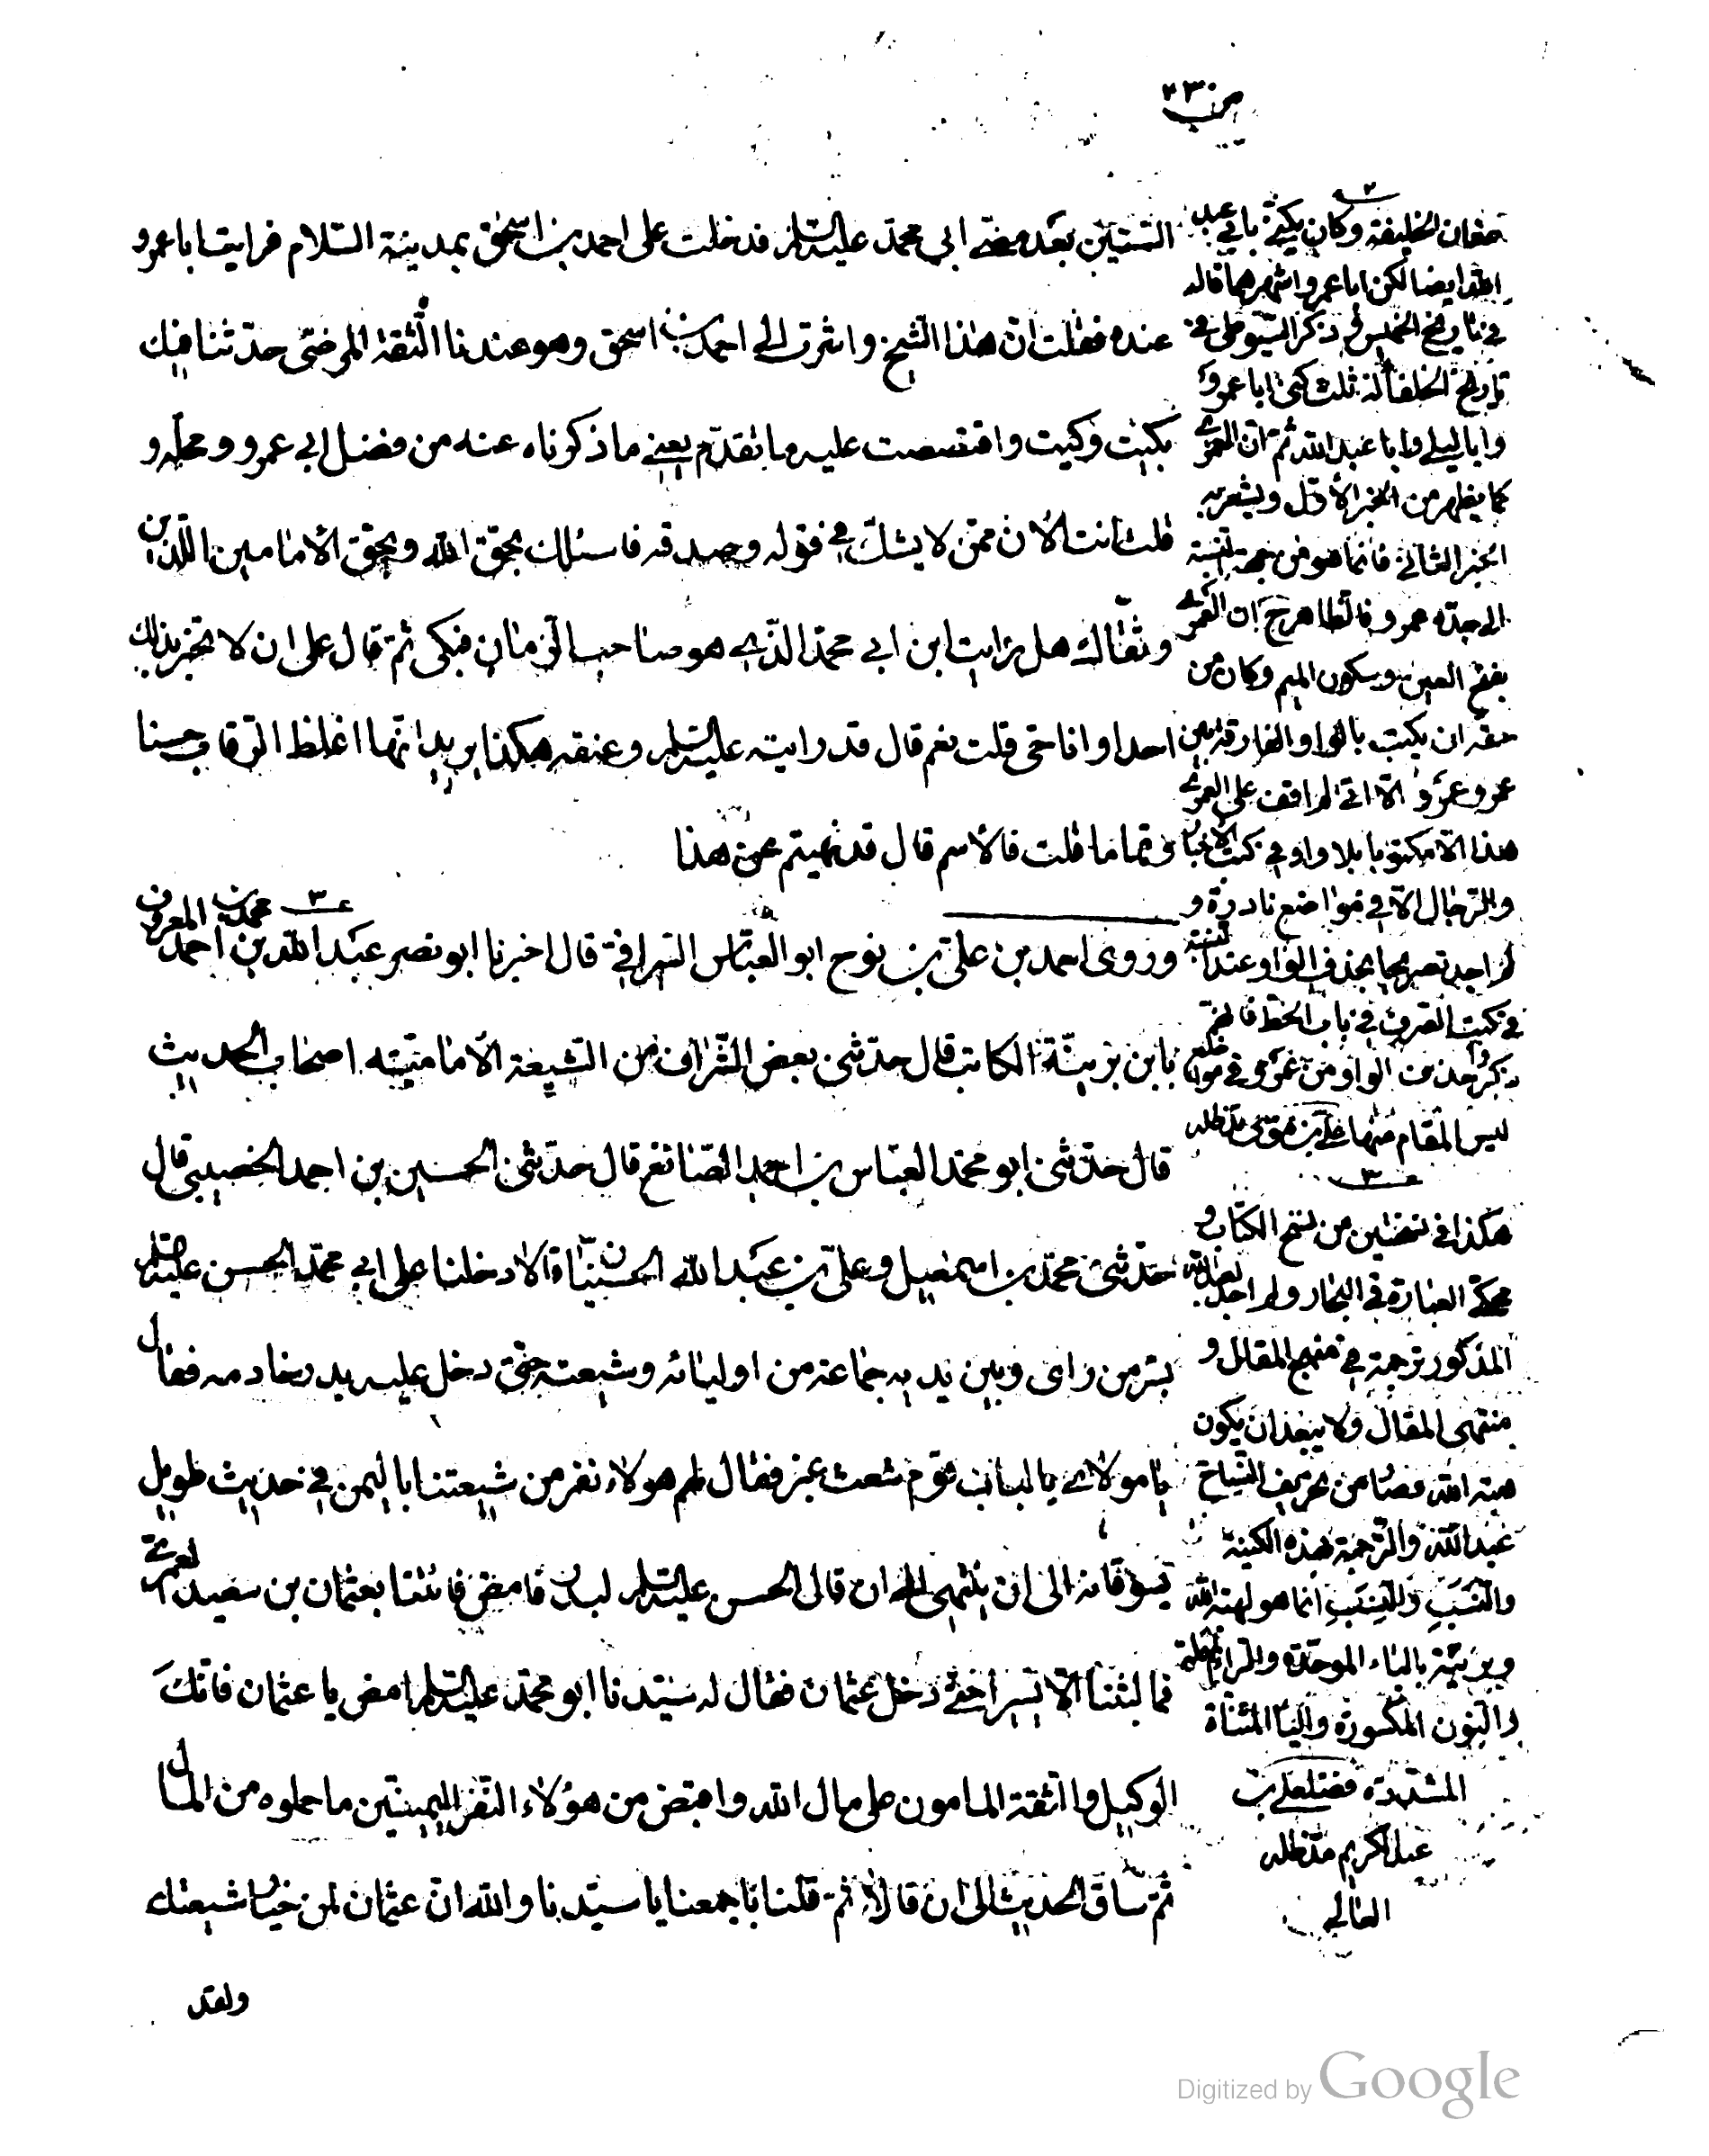 ص ٢٣
السنين بعد مضى ابي محمد عليه السلام فدخلت على احمد بن اسحق بمدينة السلام فرايت ابا عمرو
عنده فقلت ان هذا الشيخ واشرت الى احمد بن اسحق وهو عندنا الثقة المرضى حدثنا فيك
بكيت وكيت واقتصصت عليه ما تقدم يعني ما ذكرناه عنه من فضل ابي عمرو ومحله و
قلت انت الان ممن لا يشك في قوله وصدقه فاسئلك بحق الله وبحق الامامين اللذين
وثقاك هل رايت ابن ابي محمد الذي هو صاحب الزمان فبكى ثم قال على ان لا تخبر بذلك
احدا وانا حي قلت نعم قال قد رايته عليه السلام وعنقه هكذا يريد انها اغلظ الرقاب حسنا
وتماما قلت فالاسم قال قد نهيتم عن هذا
وروى احمد بن علي بن نوح ابو العباس السيرافي قال اخبرنا ابو نصر عبد الله بن محمد بن احمد المعروف
بابن برينة الكاتب قال حدثني بعض الشراف من الشيعة الامامية اصحاب الحديث
قال حدثني ابو محمد العباس بن احمد الصائغ قال حدثني الحسين بن احمد الخصيبي قال
حدثني محمد بن اسمعيل وعلي بن عبد الله الحسنيان قالا دخلنا على ابي محمد الحسن عليه السلام
بسر من راى وبين يديه جماعة من اوليائه وشيعته حتى دخل عليه بدر خادمه فقال
يا مولاي بالباب قوم شعث غبر فقال لهم هولاء نفر من شيعتنا باليمن في حديث طويل
يسوقانه الى ان ينتهى الى ان قال الحسن عليه السلام لبدر فامض فائتنا بعثمان بن سعيد العمري
فما لبثنا الا يسيرا حتى دخل عثمان فقال له سيدنا ابو محمد عليه السلام امض يا عثمان فانك
الوكيل والثقة المامون على مال الله واقبض من هؤلاء النفر اليمنيين ما حملوه من المال
ثم ساق الحديث الى ان قالا ثم قلنا باجمعنا يا سيدنا والله ان عثمان لمن خيار شيعتك
ولقد
عفان الخليفة وكان يكنى بابي عبد
الله ايضا لكن ابا عمرو اشهرهما قاله
في تاريخ الخميس وذكر السيوطي في
تاريخ الخلفاء له ثلث كنى ابا عمرو
وابا ليلى وابا عبد الله ثم ان العمري
كما يظهر من الخبر الاول ويشعر به
الخبر الثاني فانما هو من جهة نسبته
الى جده عمرو فالظاهر ح ان العمري
بفتح العين وسكون الميم وكان من
حقه ان يكتب بالواو الفارقة بين
عمرو عمرو الا اني لم اقف على العمري
هذا الا مكتوبا بلا واو في كتب الاخبار
والرجال الا في مواضع نادرة و
لم اجد تصريحا بحذف الواو عند النسبة
في كتب الصرف في باب الخط فانهم
ذكروا حذف الواو من عمرو في مواضع
ليس المقام منها علي بن موسى مد ظله
٣
هكذا في نسختين من نسخ الكتاب و
محكي العبارة في البحار ولم اجد لعبد الله
المذكور ترجمة في منهج المقال و
منتهى المقال ولا يبعد ان يكون
هبة الله فصار من تحريف النساخ
عبد الله والترجمة بهذه الكنية
والنسب واللقب انما هو لهبة الله
وبرينة بالباء الموحدة والراء المهملة
والنون المكسورة والياء المثناة
المشددة فضلعلي بن
عبد الكريم مد ظله
العالي
Digitized by Google